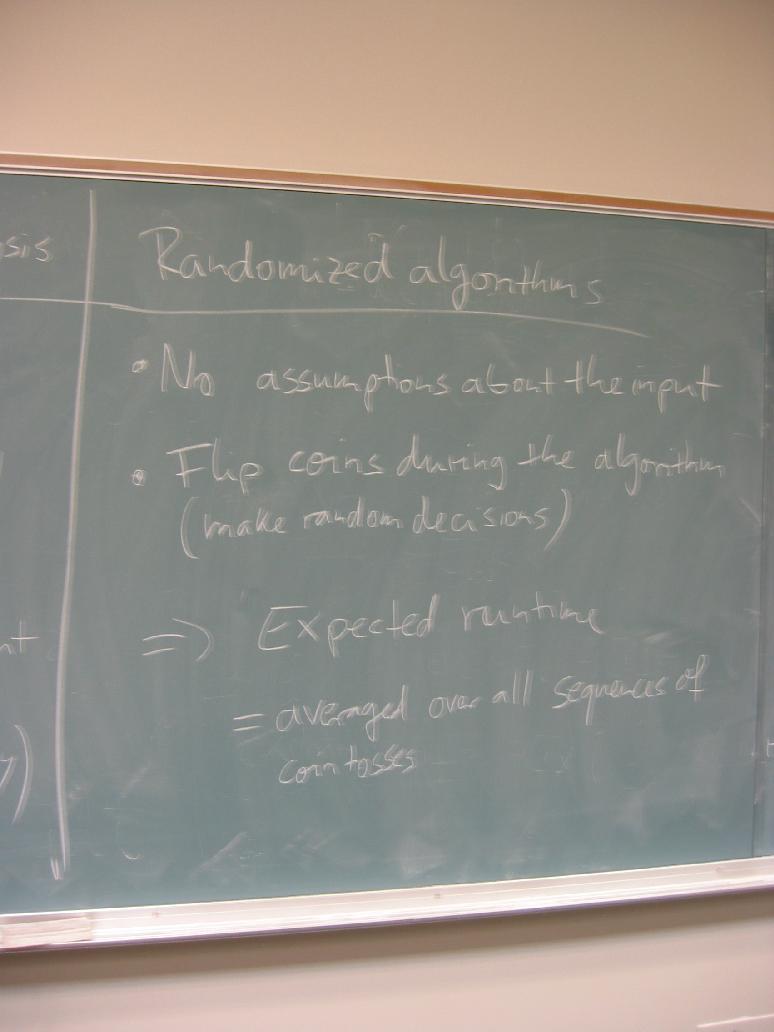 Randomized algorithms
• No assumptions about the input
• Flip coins during the algorithm
(make random decisions)
=> Expected runtime
= averaged over all sequences of
coin tosses